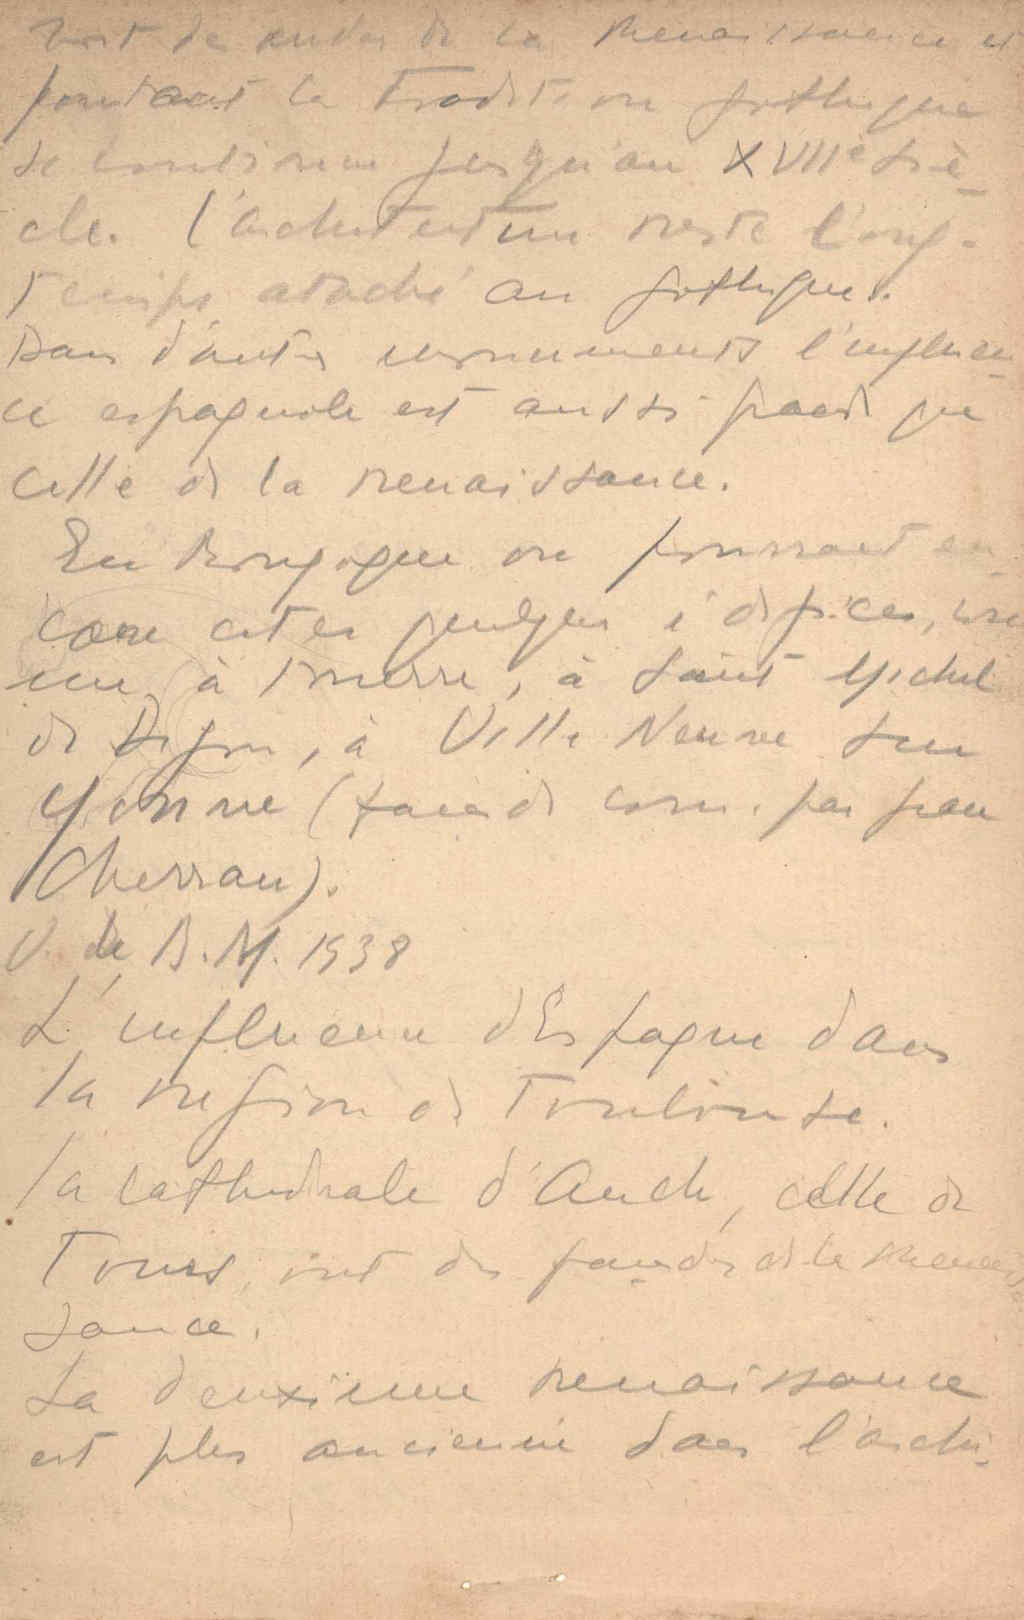 de la Renaissance et
pourtant la tradition gothique
se continue jusqu'au XVIIe siè-
cle. l'architecture reste long-
temps ataché au gothique.
Dans d'autres monuments l'influen-
ce espagnole est aussi grande que
celle de la renaissance.
En Bourgogne on pourrait en-
core citer quelques édifices,
à Tonerre, à Saint Michel
de Dijon, à Ville Neuve sur
Yonne (façade com. par Jean
Cherrau).
V. de B.M. 1938
L'influence d'Espagne dans
la region de Toulouse.
la cathedrale d'Auch, celle de
Tours, ont des façades de la Renais
sance.
La deuxieme renaissance
est plus ancienne dans l'archi-